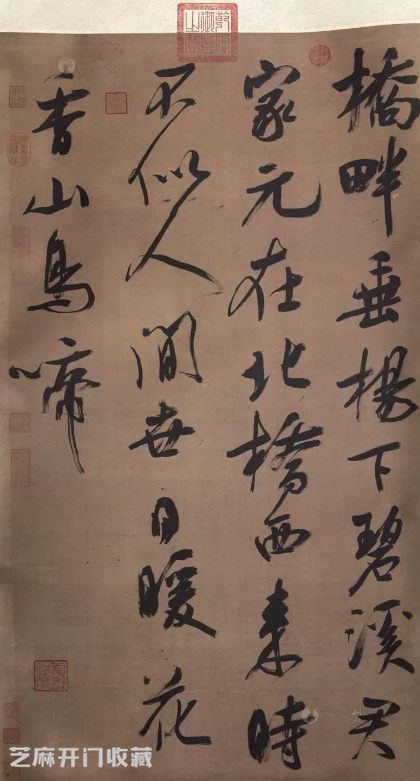 橋畔垂楊下碧溪君
家元在北橋西來時
不似人間世日暖花
香山鳥啼
芝麻开门收藏